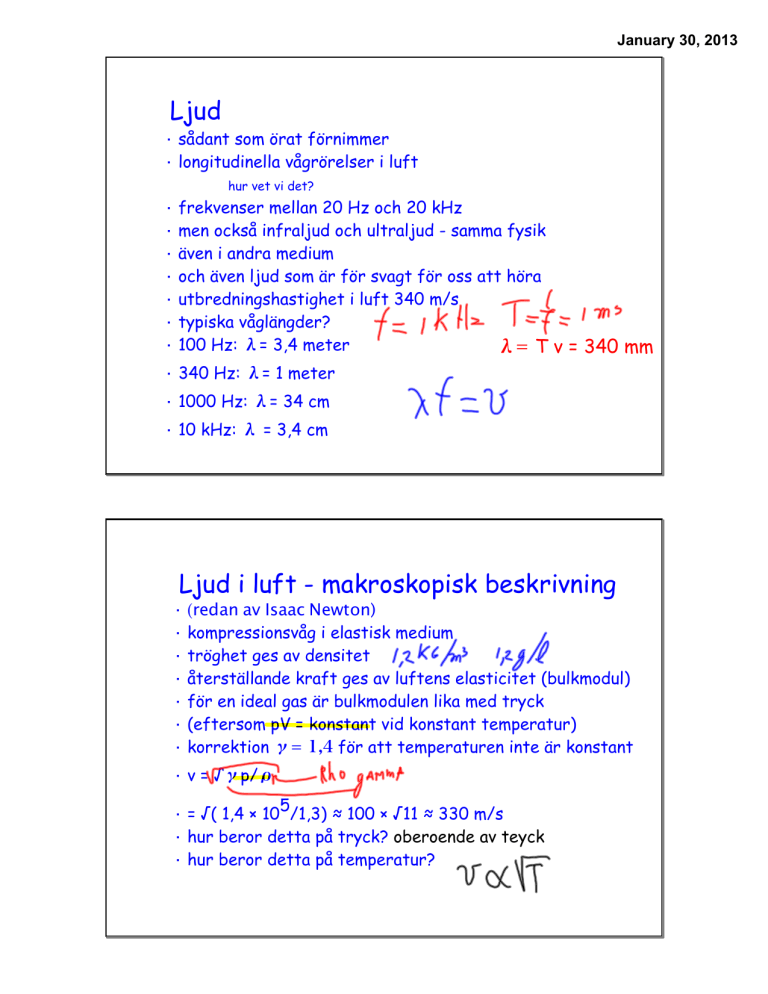 January 30, 2013
Ljud
· sådant som örat förnimmer
· longitudinella vågrörelser i luft
hur vet vi det?
· frekvenser mellan 20 Hz och 20 kHz
· men också infraljud och ultraljud - samma fysik
· även i andra medium
· och även ljud som är för svagt för oss att höra
· utbredningshastighet i luft 340 m/s
· typiska våglängder?
f = 1 kHz T = 1/f = 1 ms
· 100 Hz: λ = 3,4 meter
λ = T v = 340 mm
· 340 Hz: λ = 1 meter
· 1000 Hz: λ = 34 cm
λf = v
· 10 kHz: λ = 3,4 cm
Ljud i luft - makroskopisk beskrivning
· (redan av Isaac Newton)
· kompressionsvåg i elastisk medium
· tröghet ges av densitet 1,2 KG/m³ 1,2 g/l
· återställande kraft ges av luftens elasticitet (bulkmodul)
· för en ideal gas är bulkmodulen lika med tryck
· (eftersom pV = konstant vid konstant temperatur)
· korrektion γ = 1,4 för att temperaturen inte är konstant
· v = √ γ p/ ρ Rho gAMMA
· = √( 1,4 × 10⁵/1,3) ≈ 100 × √11 ≈ 330 m/s
· hur beror detta på tryck? oberoende av teyck
· hur beror detta på temperatur?
v ∝ √T